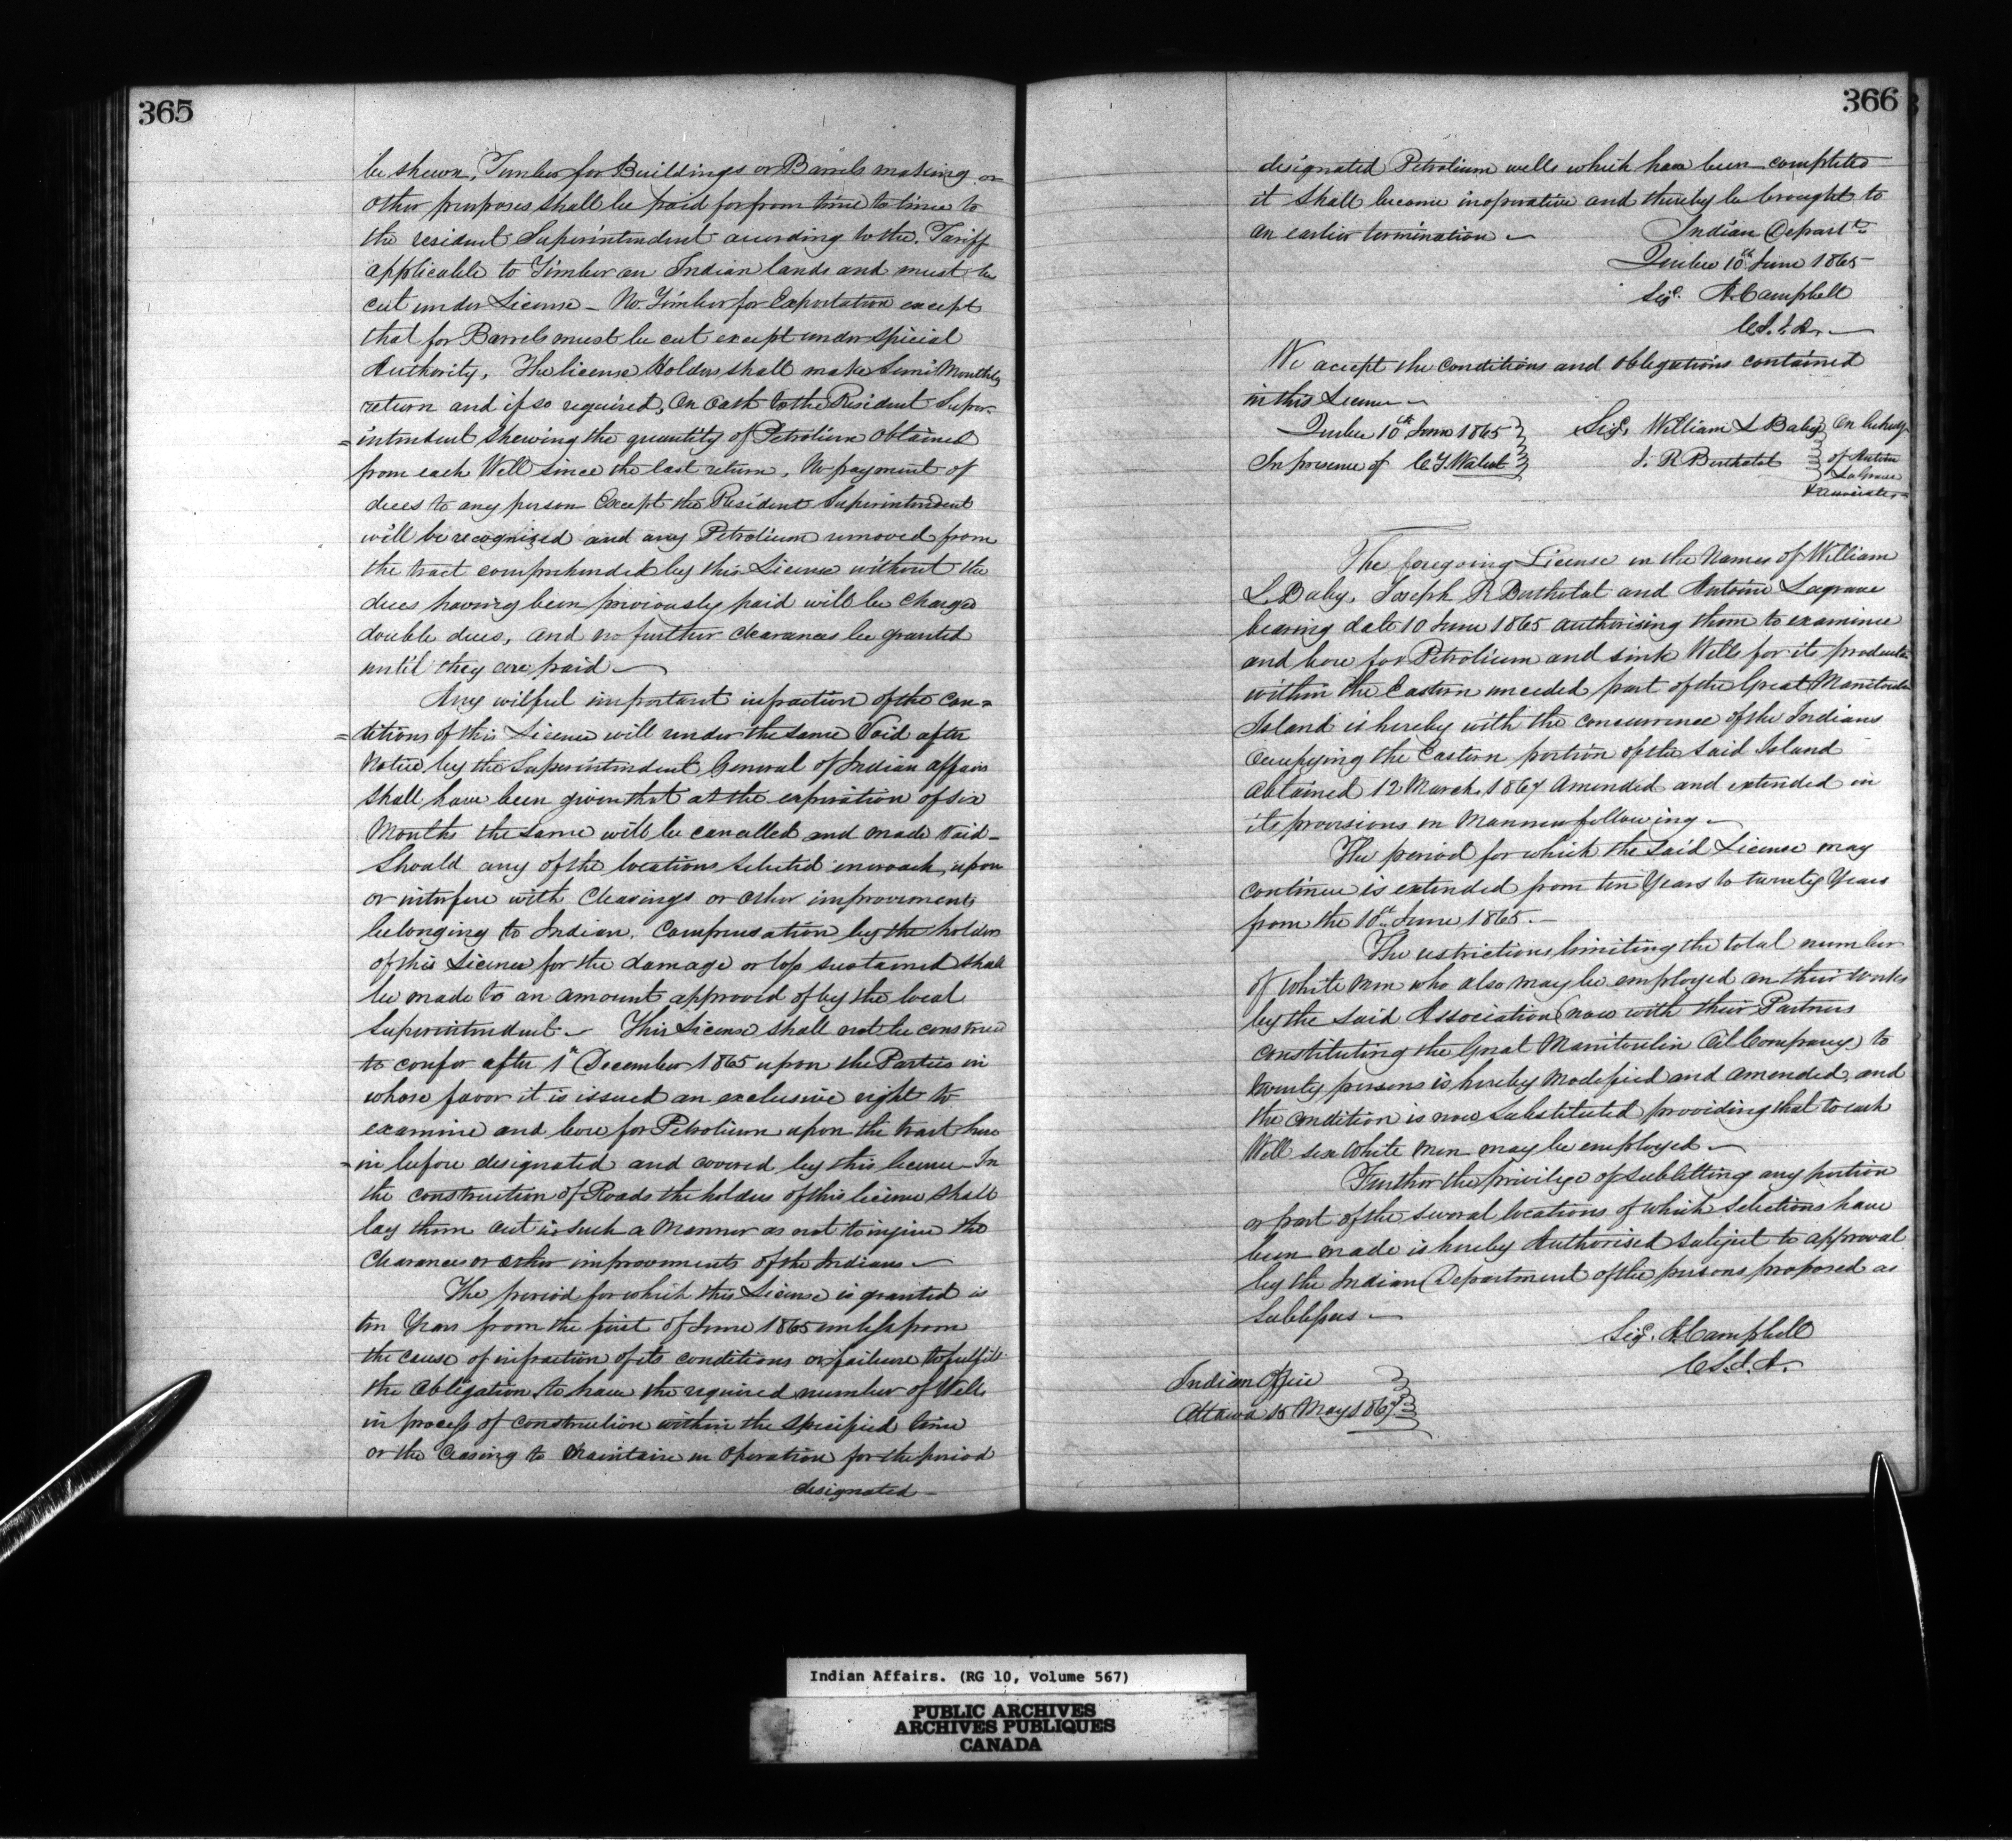 365
be shewn, Timber for Buildings or Barrels making or
other purposes shall be paid for from time to time to
the resident Superintendent according to the Tariff
applicable to Timber on Indian lands and must be
cut under License – No Timber for Exportation except
that for Barrels must be cut except under special
Authority, The license Holders shall make Semi Monthly
return and if so required, On Oath to the Resident Super-
=intendent shewing the quantity of Petrolium obtained
from each Well since the last return, No payment of
dues to any person Except the Resident Superintendent
will be recognized and any Petrolium removed from
the tract comprehended by this License without the
dues having been previously paid will be charged
double dues, and no further clearances be granted
until they are paid –
Any wilful important infraction of the Con=
=ditions of this License will render the same Void after
Notice by the Superintendent General of Indian affairs
shall have been given that at the expiration of six
Months the same will be cancelled and made Void –
Should any of the locations selected incroach upon
or interfere with Clearings or other improvements
belonging to Indian, Compensation by the holders
of this License for the damage or loss sustained shall
be made to an amount approved of by the local
Superintendent – This License shall not be construed
to confer after 1st December 1865 upon the Parties in
whose favor it is issued an exclusive right to
examine and bore for Petrolium upon the tract here
-in before designated and covered by this license – In
the construction of Roads the holders of this license shall
lay them out in such a Manner as not to injure the
Clearances or other improvements of the Indians –
The period for which this License is granted is
ten Years from the first of June 1865 unless from
the cause of infraction of its conditions or failure to fulfill
the Obligation to have the required number of Wells
in process of construction within the specified time
or the Ceasing to Maintain in Operation for the period
designated –
366
designated Petrolium wells which have been completed
it shall become inoperative and thereby be brought to
an earlier termination –
Indian Depart
Quebec 10th June 1865
Sigd. A. Campbell
C.S.I.A. –
We accept the Conditions and Obligations contained
in this License –
Quebec 10th June 1865
Sigd. William L Baby On behalf
In presence of C.T. Walcot
J. R Berthelot
of Antoine
Lagrave
& associates
The foregoing License in the Names of William
L. Baby, Joseph R Berthelot and Antoine Lagrave
bearing date 10 June 1865 authorising them to examine
and bore for Petrolium and sink Wells for its production
within the Eastern unceded part of the Great Manitoulin
Island is hereby with the concurrence of the Indians
Occupying the Eastern portion of the said Island
Obtained 12 March 1867 Amended and extended in
its provisions in Manner following –
The period for which the said License may
continue is extended from ten Years to twenty Years
from the 10th June 1865. –
The restrictions limiting the total number
of White Men who also may be employed on their works
by the said Association (now with their Partners
constituting the Great Manitoulin Oil Company) to
twenty persons is hereby Modified and amended, and
the condition is now Substituted providing that to each
Well six White Men may be employed –
Further the privilege of subletting any portion
or part of the several locations of which selections have
been made is hereby Authorised subject to approval
by the Indian Department of the persons proposed as
Sublessees –
Sigd. A. Campbell
C.S.I.A.
Indian Office
Ottawa 15 May 1867
Indian Affairs. (RG 10, Volume 567)
PUBLIC ARCHIVES
ARCHIVES PUBLIQUES
CANADA